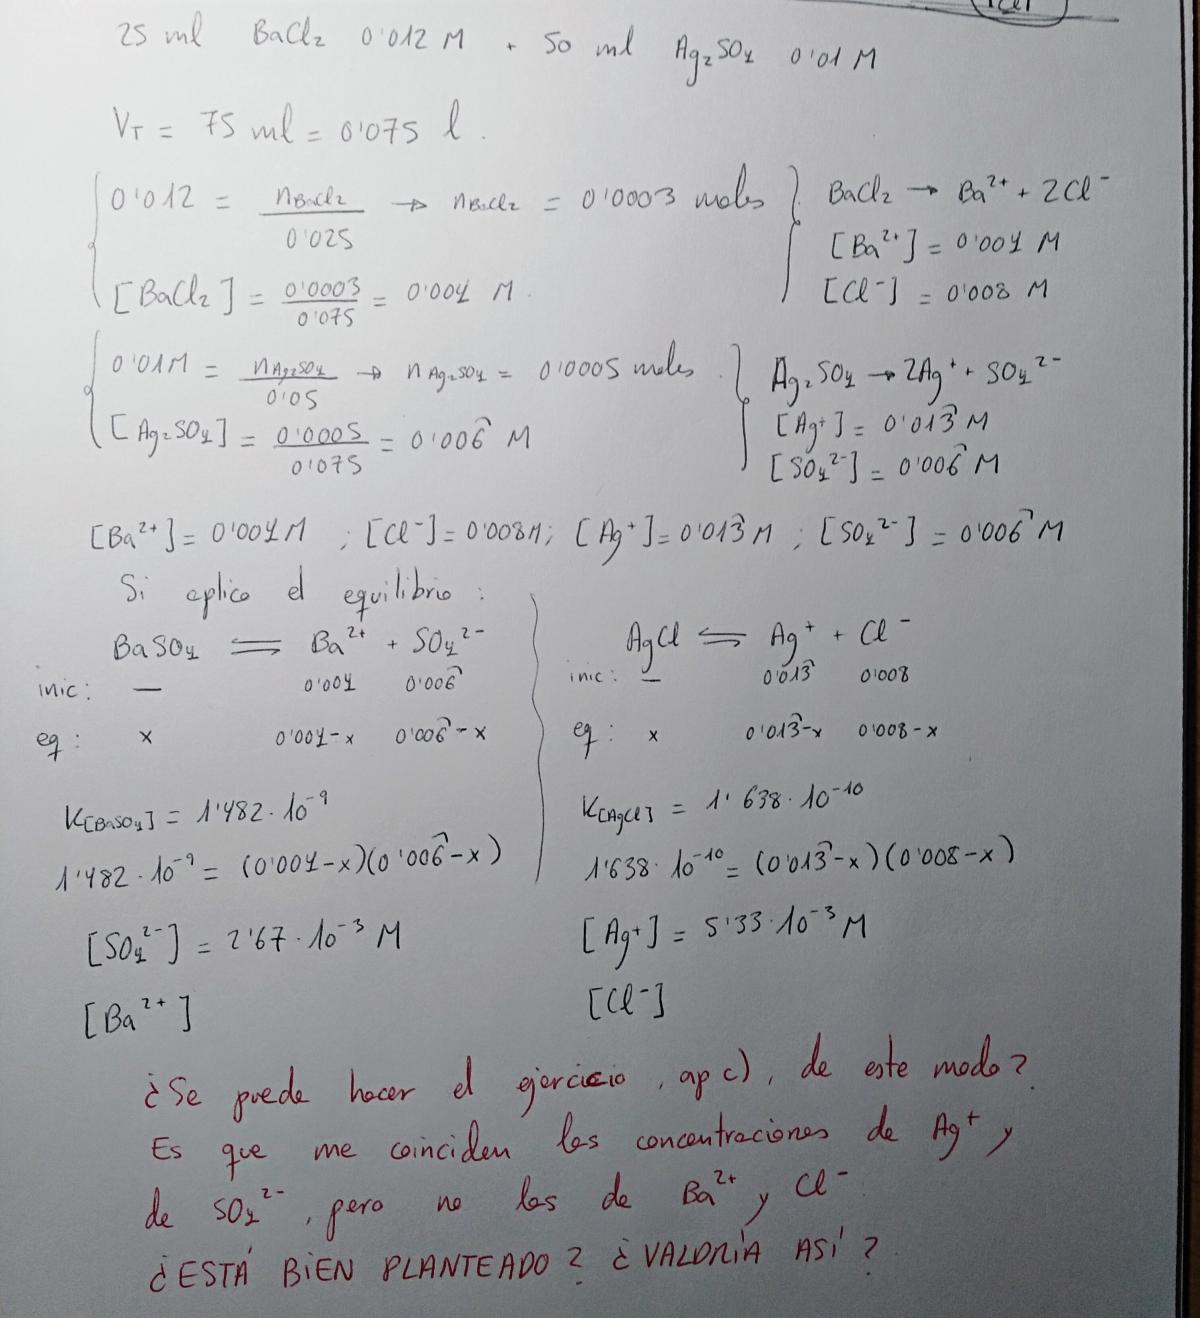 25 ml BaCl₂ 0'012 M + 50 ml Ag₂SO₄ 0'01 M
V_T = 75 ml = 0'075 l.
0'012 = n_BaCl₂ / 0'025 → n_BaCl₂ = 0'0003 moles
[BaCl₂] = 0'0003 / 0'075 = 0'004 M.
BaCl₂ → Ba²⁺ + 2Cl⁻
[Ba²⁺] = 0'004 M
[Cl⁻] = 0'008 M
0'01M = n_Ag₂SO₄ / 0'05 → n_Ag₂SO₄ = 0'0005 moles.
[Ag₂SO₄] = 0'0005 / 0'075 = 0'006̂ M
Ag₂SO₄ → 2Ag⁺ + SO₄²⁻
[Ag⁺] = 0'013̂ M
[SO₄²⁻] = 0'006̂ M
[Ba²⁺] = 0'004M ; [Cl⁻] = 0'008M; [Ag⁺] = 0'013̂ M ; [SO₄²⁻] = 0'006̂ M
Si aplico el equilibrio :
BaSO₄ ⇌ Ba²⁺ + SO₄²⁻
inic: — 0'004 0'006̂
eq : x 0'004-x 0'006̂-x
K[BaSO₄] = 1'482·10⁻⁹
1'482·10⁻⁹ = (0'004-x)(0'006̂-x)
[SO₄²⁻] = 2'67·10⁻³ M
[Ba²⁺]
AgCl ⇌ Ag⁺ + Cl⁻
inic: — 0'013̂ 0'008
eq : x 0'013̂-x 0'008-x
K[AgCl] = 1'638·10⁻¹⁰
1'638·10⁻¹⁰ = (0'013̂-x)(0'008-x)
[Ag⁺] = 5'33·10⁻³ M
[Cl⁻]
¿Se puede hacer el ejercicio, ap c), de este modo?
Es que me coinciden las concentraciones de Ag⁺ y
de SO₄²⁻, pero no las de Ba²⁺ y Cl⁻
¿ESTÁ BIEN PLANTEADO? ¿VALDRÍA ASÍ?